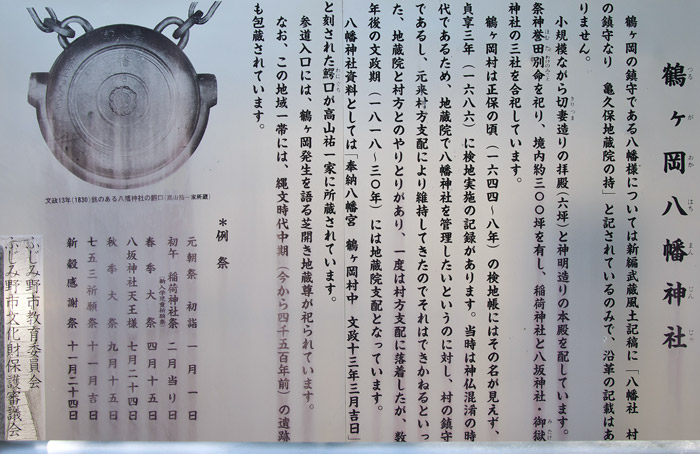 鶴ヶ岡八幡神社
つるがおかはちまんじんじゃ
鶴ヶ岡の鎮守である八幡様については新編武蔵風土記稿に「八幡社　村
の鎮守なり　亀久保地蔵院の持」と記されているのみで、沿革の記載はあ
りません。
小規模ながら切妻造りの拝殿(六坪)と神明造りの本殿を配しています。
きりづま
祭神誉田別命を祀り、境内約三〇〇坪を有し、稲荷神社と八坂神社・御嶽
ほむたわけのみこと
みたけ
神社の三社を合祀しています。
鶴ヶ岡村は正保の頃(一六四四〜八年)の検地帳にはその名が見えず、
貞享三年(一六八六)に検地実施の記録があります。当時は神仏混淆の時
代であるため、地蔵院で八幡神社を管理したいというのに対し、村の鎮守
であるし、元来村方支配により維持してきたのでそれはできかねるといっ
た、地蔵院と村方とのやりとりがあり、一度は村方支配に落着したが、数
年後の文政期(一八一八〜三〇年)には地蔵院支配となっています。
八幡神社資料としては「奉納八幡宮　鶴ヶ岡村中　文政十三年三月吉日」
と刻された鰐口が高山祐一家に所蔵されています。
わにぐち
参道入口には、鶴ヶ岡発生を語る芝開き地蔵尊が祀られています。
なお、この地域一帯には、縄文時代中期(今から四千五百年前)の遺跡
も包蔵されています。
文政13年(1830)銘のある八幡神社の鰐口(高山祐一家所蔵)
*例祭
元朝祭　初詣　一月一日
初午　稲荷神社祭　二月当り日
(新入学児童祈願祭)
春季大祭　四月十五日
八坂神社天王様　七月二十四日
秋季大祭　九月十五日
七五三祈願祭　十一月吉日
新穀感謝祭　十一月二十四日
ふじみ野市教育委員会
ふじみ野市文化財保護審議会